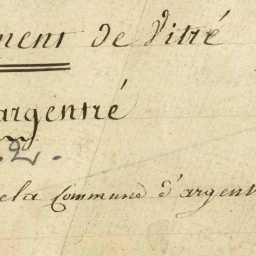 ment de Vitré
argentré
2.
de la Commune d'argent